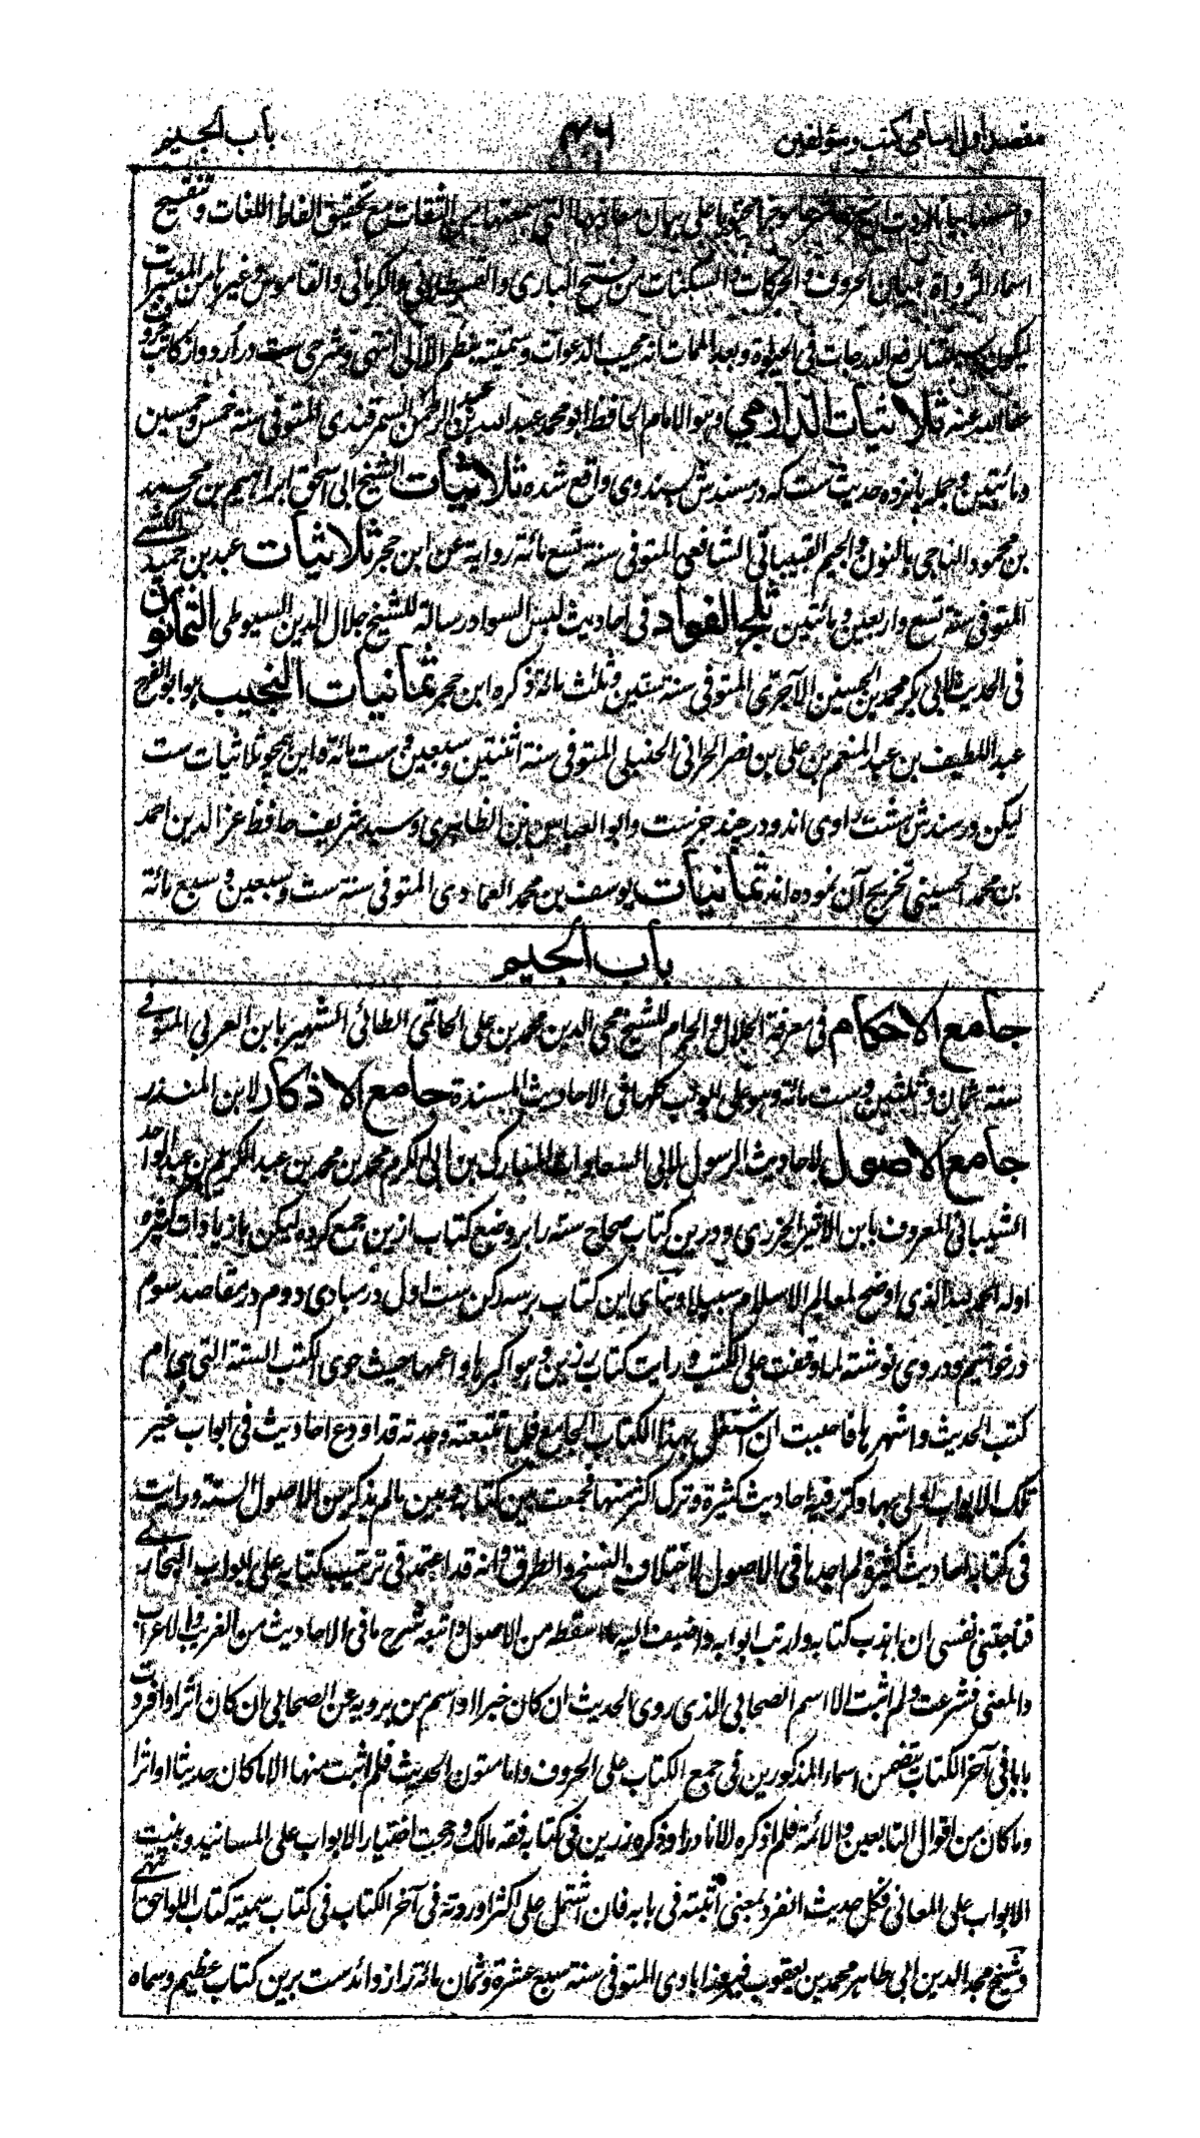 مقصد اول اسامی کتب و مؤلفین
۴۶
باب الجیم
علی بیان معانیها التی الثقات مع تحقیق الفاظ اللغات و تنقیح
اسماء الرواة و بیان الحروف والحرکات والسکنات من فتح الباری والقسطلانی والکرمانی والقاموس وغیرها من المعتبرات
لیکون لنا رفع الدرجات فی الحیوة وبعد الممات انه مجیب الدعوات وسمیته نظم اللآلی انتهی وشرحی ست در اردو از کاتب حروف
عفا الله عنه ثلاثیات الدارمی وهو الامام الحافظ ابو محمد عبد الله بن عبد الرحمن السمرقندی المتوفی سنة خمس وخمسین
ومائتین وجمله پانزده حدیث ست که در مسندش بسند وی واقع شده ثلاثیات الشیخ ابی اسحق ابراهیم بن محمد
بن محمود الناجی بالنون والجیم القبیباتی الشافعی المتوفی سنة تسع مائة روایة عن ابن حجر ثلاثیات عبد بن حمید الکشی
المتوفی سنة تسع واربعین ومائتین ثلج الفواد فی احادیث لبس السواد رسالة للشیخ جلال الدین السیوطی الثمانون
فی الحدیث لابی بکر محمد بن الحسین الآجری المتوفی سنة ستین وثلث مائة ذکره ابن حجر ثمانیات النجیب هو ابو الفرج
عبد اللطیف بن عبد المنعم بن علی بن نصر الحرانی الحنبلی المتوفی سنة اثنتین وسبعین وست مائة و این همچو ثلاثیات ست
لیکن در سندش هشت راوی اند و در چند جز ست وابو العباس بن الظاهری و سید شریف حافظ عز الدین احمد
بن محمد الحسینی تخریج آن نموده اند ثمانیات یوسف بن محمد العمادی المتوفی سنة ست وسبعین وسبع مائة
باب الجیم
جامع الاحکام فی معرفة الحلال والحرام للشیخ محی الدین محمد بن علی الحاتمی الطائی الشهیر بابن العربی المتوفی
سنة ثمان وثلثین وست مائة وهو علی ابواب کلها فی الاحادیث المسندة جامع الاذکار لابن المنذر
جامع الاصول لاحادیث الرسول لابی السعادات المبارک بن ابی الکرم محمد بن محمد بن عبد الکریم بن عبد الواحد
الشیبانی المعروف بابن الاثیر الجزری و درین کتاب صحاح سته را بر وضع کتاب ازین جمع کرده لیکن باز یادات کثیره
اوله الحمد لله الذی اوضح لمعالم الاسلام سبیلا و بنای این کتاب بر سه رکن ست اول در مبادی دوم در مقاصد سوم
در خواتیم و در وی نوشته لما وقفت علی الکتب ورایت کتاب رزین وهو اکبرها واعمها حیث حوی الکتب الستة التی هی ام
کتب الحدیث واشهرها فاحببت ان اشتغل بهذا الکتاب الجامع فلما تتبعته وجدته قد اودع احادیث فی ابواب غیر
تلک الابواب اولی بها وکرر فیه احادیث کثیرة وترک اکثر منها فجمعت بین کتابه وبین مالم یذکر من الاصول الستة ورایت
فی کتابه احادیث کثیرة لم اجدها فی الاصول لاختلاف النسخ والطرق وانه قد اعتمد فی ترتیب کتابه علی ابواب البخاری
فناجتنی نفسی ان اهذب کتابه وارتب ابوابه واضیف الیه ما اسقطه من الاصول واتبعه شرح ما فی الاحادیث من الغریب والاعراب
والمعنی فشرعت ولم اثبت الا اسم الصحابی الذی روی الحدیث ان کان خبرا او اسم من یرویه عن الصحابی ان کان اثرا وافردت
بابا فی آخر الکتاب یتضمن اسماء المذکورین فی جمیع الکتاب علی الحروف واما متون الحدیث فلم اثبت منها الا ما کان حدیثا او اثرا
وما کان من اقوال التابعین والائمة فلم اذکره الا نادرا وذکر رزین فی کتابه فقه مالک ورجحت اختیار الابواب علی المسانید وبنیت
الابواب علی المعانی فکل حدیث انفرد لمعنی اثبته فی بابه فان اشتمل علی اکثر اوردته فی آخر الکتاب فی کتاب سمیته کتاب اللواحق انتهی
وشیخ مجد الدین ابی طاهر محمد بن یعقوب فیروزابادی المتوفی سنة سبع عشرة وثمان مائة را زوائد ست برین کتاب عظیم وسماه